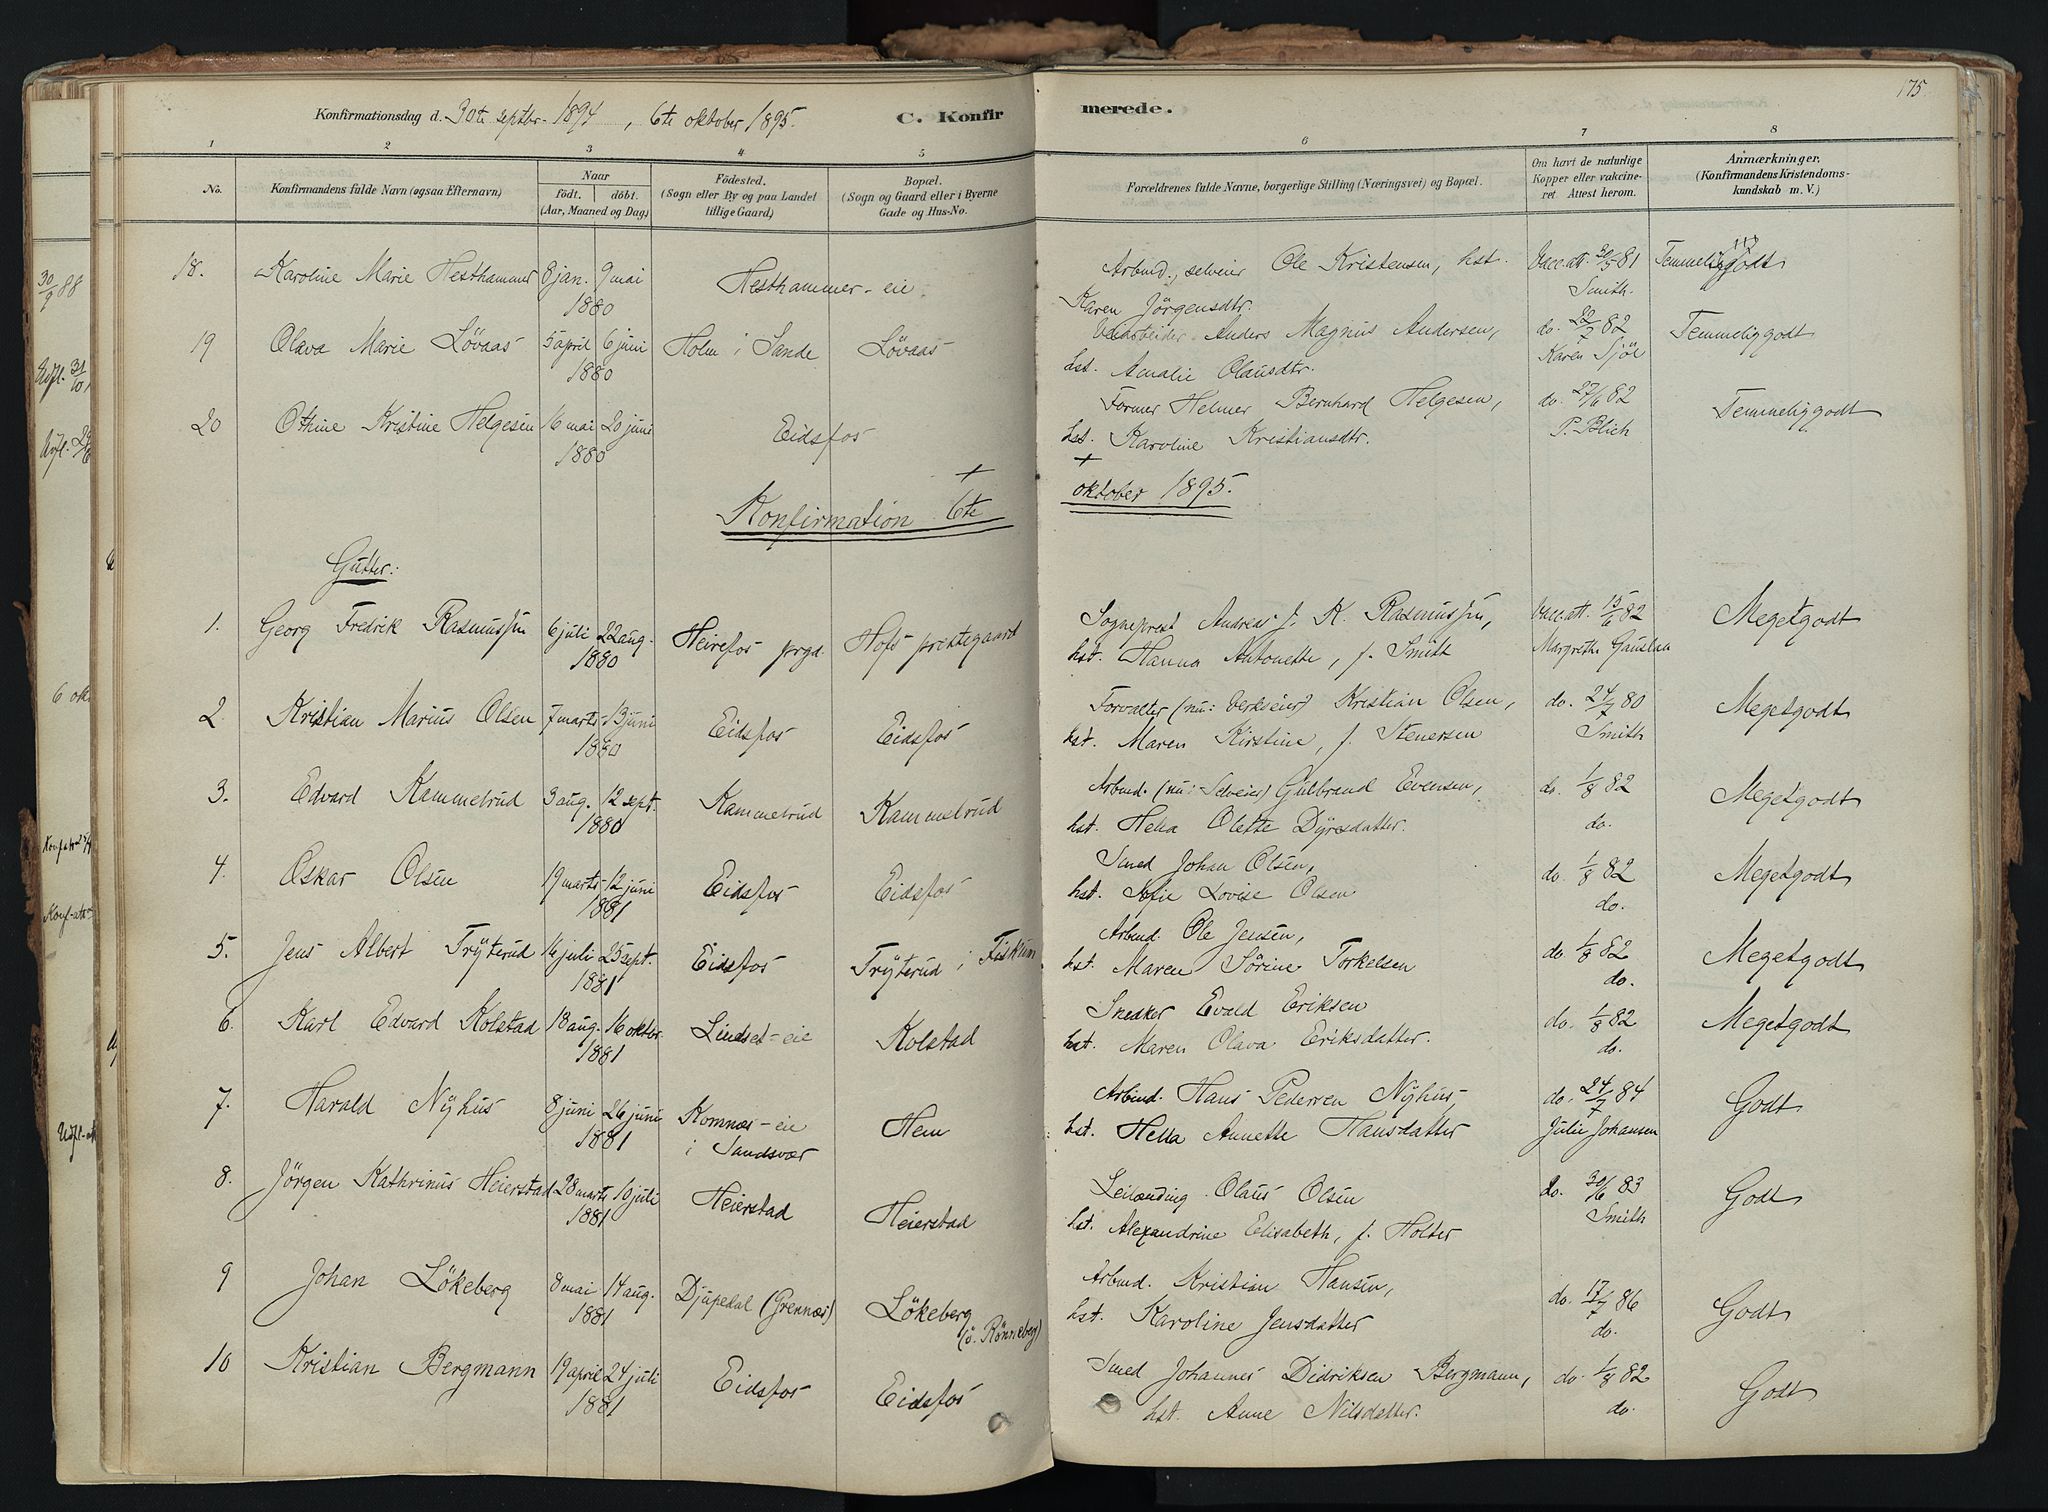 175
Konfirmationsdag d. 30te septbr. 1894, 6te oktober 1895. C. Konfirmerede.
1 2 3 4 5 6 7 8
No. Konfirmandens fulde Navn (ogsaa Efternavn) Naar født. døbt. (Aar, Maaned og Dag) Fødested. (Sogn eller By og paa Landet tillige Gaard.) Bopæl. (Sogn og Gaard eller i Byerne Gade og Hus-No. Forældrenes fulde Navne, borgerlige Stilling (Næringsvei) og Bopæl. Om havt de naturlige Kopper eller vakcineret Attest herom. Anmærkninger. (Konfirmandens Kristendomskundskab m. V.)
18. Karoline Marie Hesthammer 8 jan. 9 mai 1880 Hesthammer-eie Arbmd., selveier Ole Kristensen, hst. Vacc. att. 30/5 81 Temmelig godt
Karen Jörgensdtr. Smith.
19 Olava Marie Lövaas 5 april 6 juni 1880 Holm i Sande Lövaas Anders Magnus Andersen, do. 22/7 82 Temmelig godt
hst. Amalie Olausdtr. Karen Sjöl
20 Othine Kristine Helgesen 16 mai 20 juni 1880 Eidsfos Former Helmer Bernhard Helgesen, do. 27/6 82 Temmelig godt
hst. Karoline Kristiansdtr. P. Blich
+ +
Konfirmation 6te oktober 1895.
Gutter:
1. Georg Fredrik Rasmussen 6 juli 22 aug. 1880 Heirefos prgd. Hofs prestegaard Sogneprest Andreas J. K. Rasmussen, Vacc. att. 15/6 82 Megetgodt
hst. Hanna Antonette, f. Smith Margrethe Gauslaa
2. Kristian Marius Olsen 7 marts 13 juni 1880 Eidsfos Eidsfos Forvalter (nu: Verkseier) Kristian Olsen, do. 24/7 80 Megetgodt
hst. Maren Kirstine, f. Stenersen Smith
3. Edvard Kammelrud 3 aug. 12 sept. 1880 Kammelrud Kammelrud Arbmd. (nu: Selveier) Gulbrand Evensen, do. 1/8 82 Megetgodt
hst. Hella Olette Dyresdatter. do.
4. Oskar Olsen 19 marts 12 juni 1881 Eidsfos Eidsfos Smed Johan Olsen, do. 1/8 82 Megetgodt
hst. Sofie Lovise Olsen do.
5. Jens Albert Tryterud 16 juli 25 sept. 1881 Eidsfos Tryterud i Fiskum Arbmd. Ole Jensen, do. 1/8 82 Megetgodt
hst. Maren Sörine Torkelsen do.
6. Karl Edvard Kolstad 18 aug. 16 oktbr. 1881 Lindset-eie Kolstad Snedker Evald Eriksen do. 1/8 82 Megetgodt
hst. Maren Olava Eriksdatter. do.
7. Harald Nyhus 8 juni 26 juni 1881 Komnæs-eie i Sandsvær Hem Arbmd. Hans Pedersen Nyhus, do. 24/7 84 Godt
hst. Hella Annette Hansdatter Julie Johansen
8. Jörgen Kathrinus Heierstad 28 marts 10 juli 1881 Heierstad Heierstad Leilænding Olaus Olsen do. 30/6 83 Godt
hst. Alexandrine Elisabeth, f. Holter Smith
9 Johan Lökeberg 8 mai 14 aug. 1881 Djupedal (Grennæs) Lökeberg (ö. Rönneberg) Arbmd. Kristian Hansen, do. 17/7 86 Godt
hst. Karoline Jensdatter do.
10 Kristian Bergmann 19 april 24 juli 1881 Eidsfos Eidsfos Smed Johannes Didriksen Bergmann, do. 1/8 82 Godt
hst. Anne Nilsdatter. do.
30/9 88
6 okt